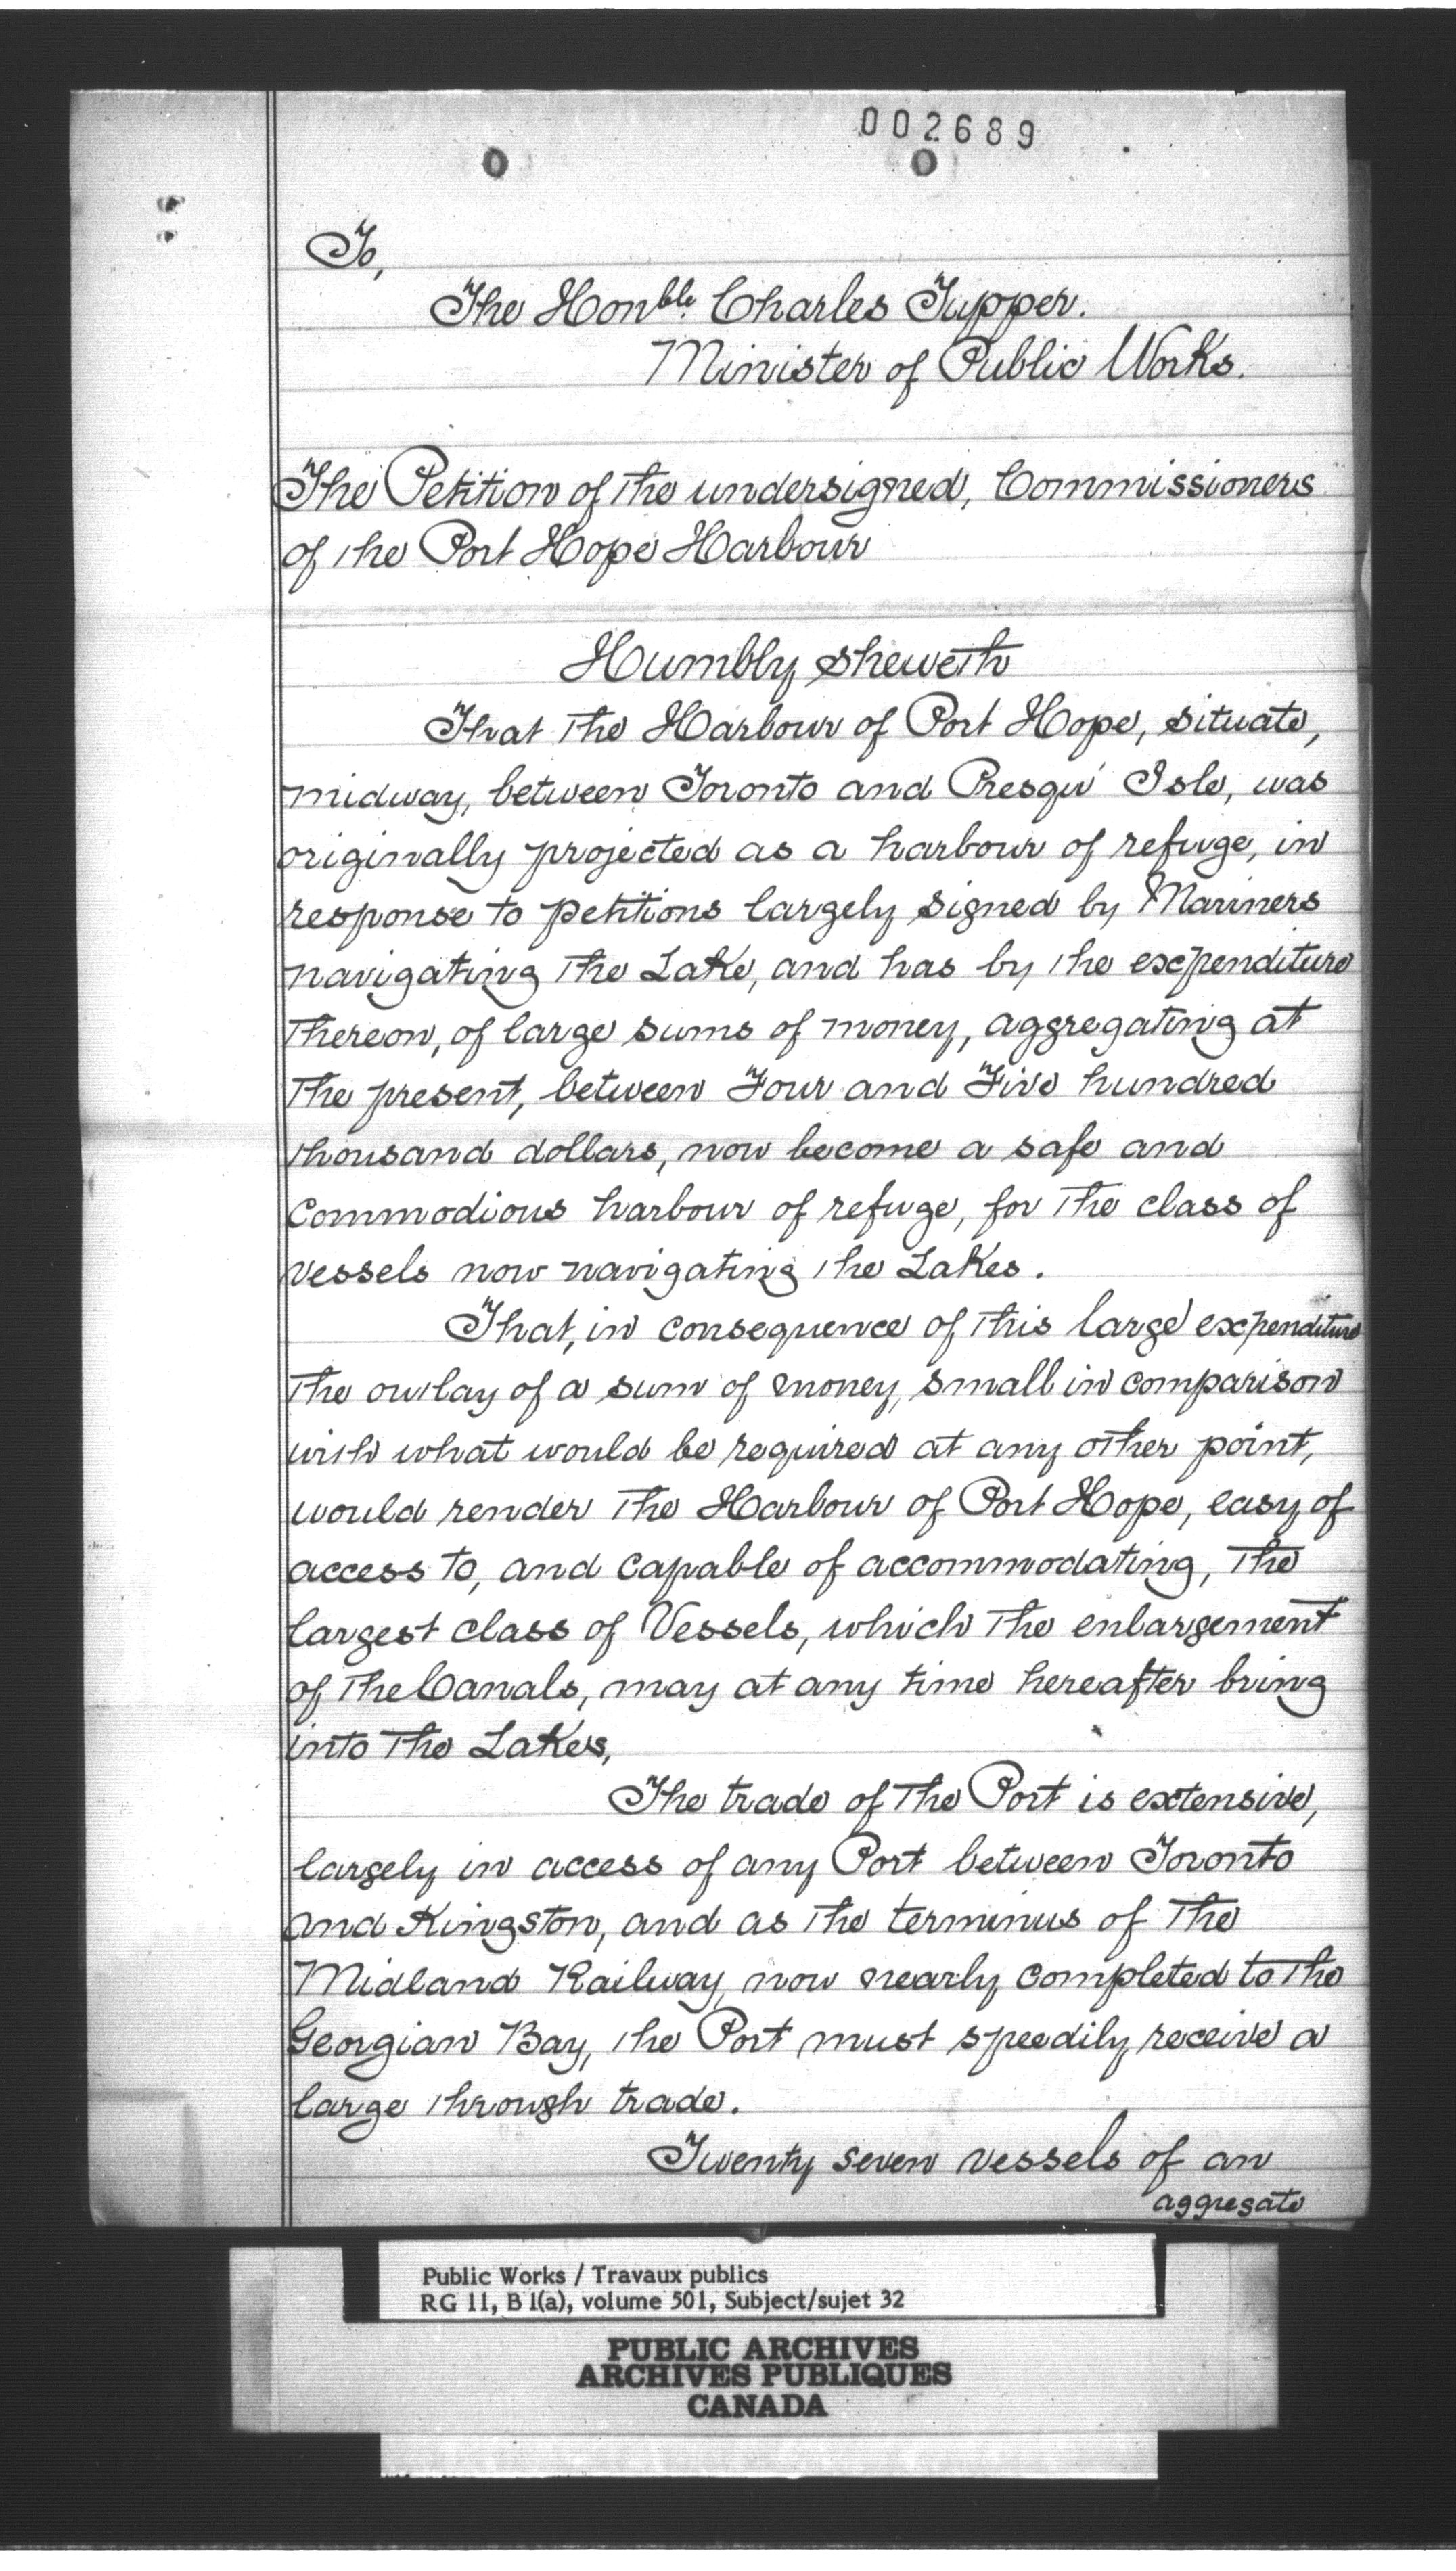 002689
To,
The Honble. Charles Tupper.
Minister of Public Works.
The Petition of the undersigned, Commissioners
of the Port Hope Harbour
Humbly sheweth
That the Harbour of Port Hope, situate,
midway, between Toronto and Presqu' Isle, was
originally projected as a harbour of refuge, in
response to petitions largely signed by Mariners
navigating the Lake, and has by the expenditure
thereon, of large sums of money, aggregating at
the present, between Four and Five hundred
thousand dollars, now become a safe and
commodious harbour of refuge, for the class of
vessels now navigating the Lakes.
That, in consequence of this large expenditure
the outlay of a sum of money, small in comparison
with what would be required at any other point,
would render the Harbour of Port Hope, easy of
access to, and capable of accommodating, the
largest class of Vessels, which the enlargement
of the Canals, may at any time hereafter bring
into the Lakes,
The trade of the Port is extensive,
largely in access of any Port between Toronto
and Kingston, and as the terminus of the
Midland Railway, now nearly completed to the
Georgian Bay, the Port must speedily receive a
large through trade.
Twenty seven vessels of an
aggregate
Public Works / Travaux publics
RG 11, B 1(a), volume 501, Subject/sujet 32
PUBLIC ARCHIVES
ARCHIVES PUBLIQUES
CANADA